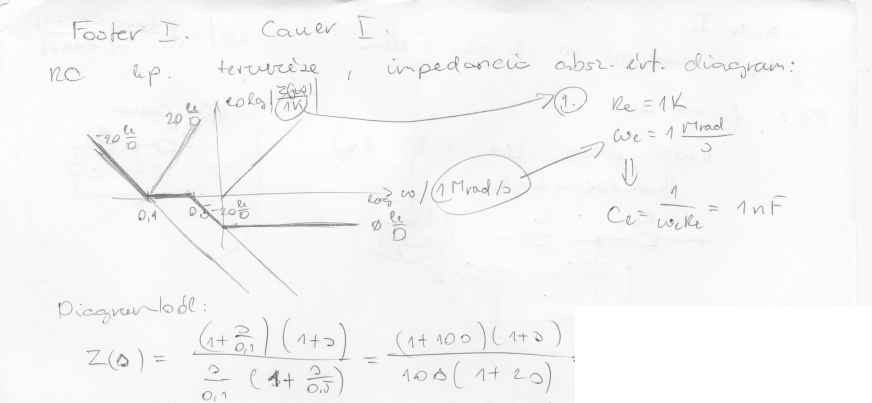 Foster I. Cauer I.
RC kp. tervezése, impedancia absz. ért. diagram:
20 log |Z(jω)/1K|
-20 dB/D
20 dB/D
0,1
0,5
-20 dB/D
log ω / 1 Mrad/s
0 dB/D
1. Re = 1K
ωe = 1 Mrad/s
⇓
Ce = 1/(ωeRe) = 1nF
Diagramból:
Z(s) = (1+s/0,1)(1+s) / (s/0,1 (1+s/0,5)) = (1+10s)(1+s) / (10s(1+2s)) =